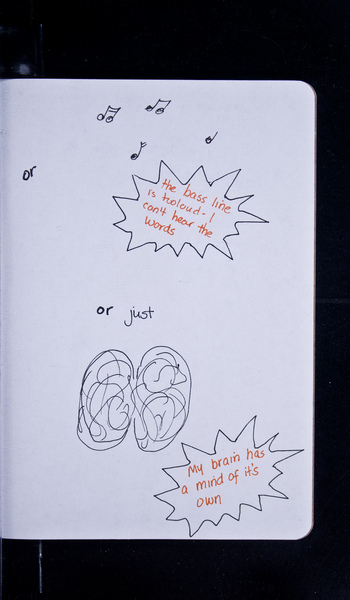 or
the bass line
is tooloud - I
can't hear the
words
or just
My brain has
a mind of it's
own